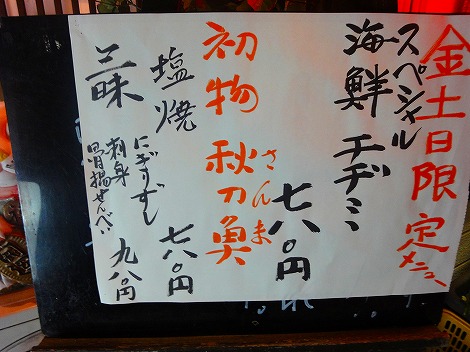 金土日限定メニュー
スペシャル
海鮮チヂミ
七八〇円
初物 秋刀魚
さんま
塩焼
七八〇円
三味
にぎりずし
刺身
骨揚せんべい
九八〇円